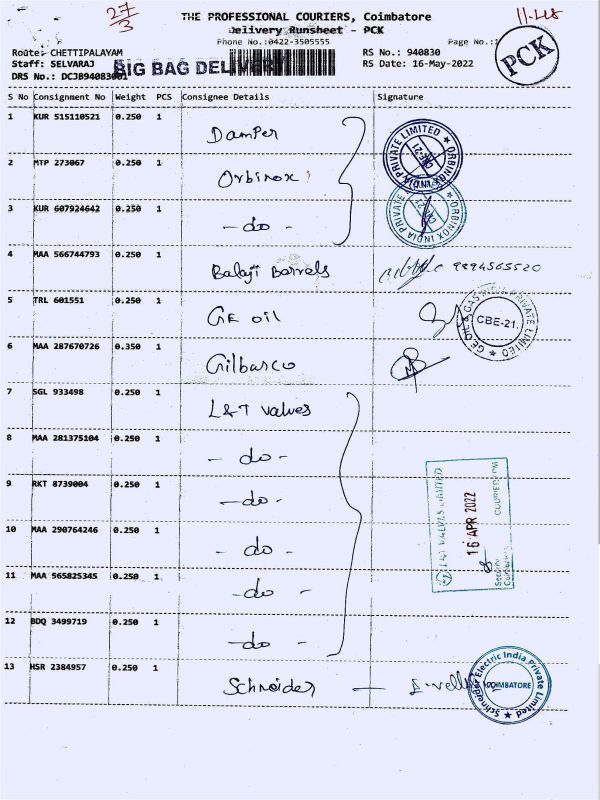 27/3
THE PROFESSIONAL COURIERS, Coimbatore
Delivery Runsheet - PCK
Phone No.:0422-3505555
Page No.:1
PCK
Route: CHETTIPALAYAM
RS No.: 940830
Staff: SELVARAJ
BIG BAG DELIVERY
RS Date: 16-May-2022
DRS No.: DCJB94083001
S No Consignment No Weight PCS Consignee Details Signature
1 KUR 515110521 0.250 1 Damper
ORBINOX INDIA PRIVATE LIMITED
2 MTP 273067 0.250 1 Orbinox
3 KUR 607924642 0.250 1 -do-
ORBINOX INDIA PRIVATE
4 MAA 566744793 0.250 1 Balaji Barrels 9894565520
5 TRL 601551 0.250 1 GE oil
GE OIL & GAS INDIA PRIVATE LIMITED
CBE-21.
6 MAA 287670726 0.350 1 Gilbarco
7 SGL 933498 0.250 1 L&T valves
8 MAA 281375104 0.250 1 -do-
9 RKT 8739004 0.250 1 -do-
L&T VALVES LIMITED
16 APR 2022
10 MAA 290764246 0.250 1 -do-
11 MAA 565825345 0.250 1 -do-
12 BDQ 3499719 0.250 1 -do-
13 HSR 2384957 0.250 1 Schneider -
Schneider Electric India Private Limited
COIMBATORE